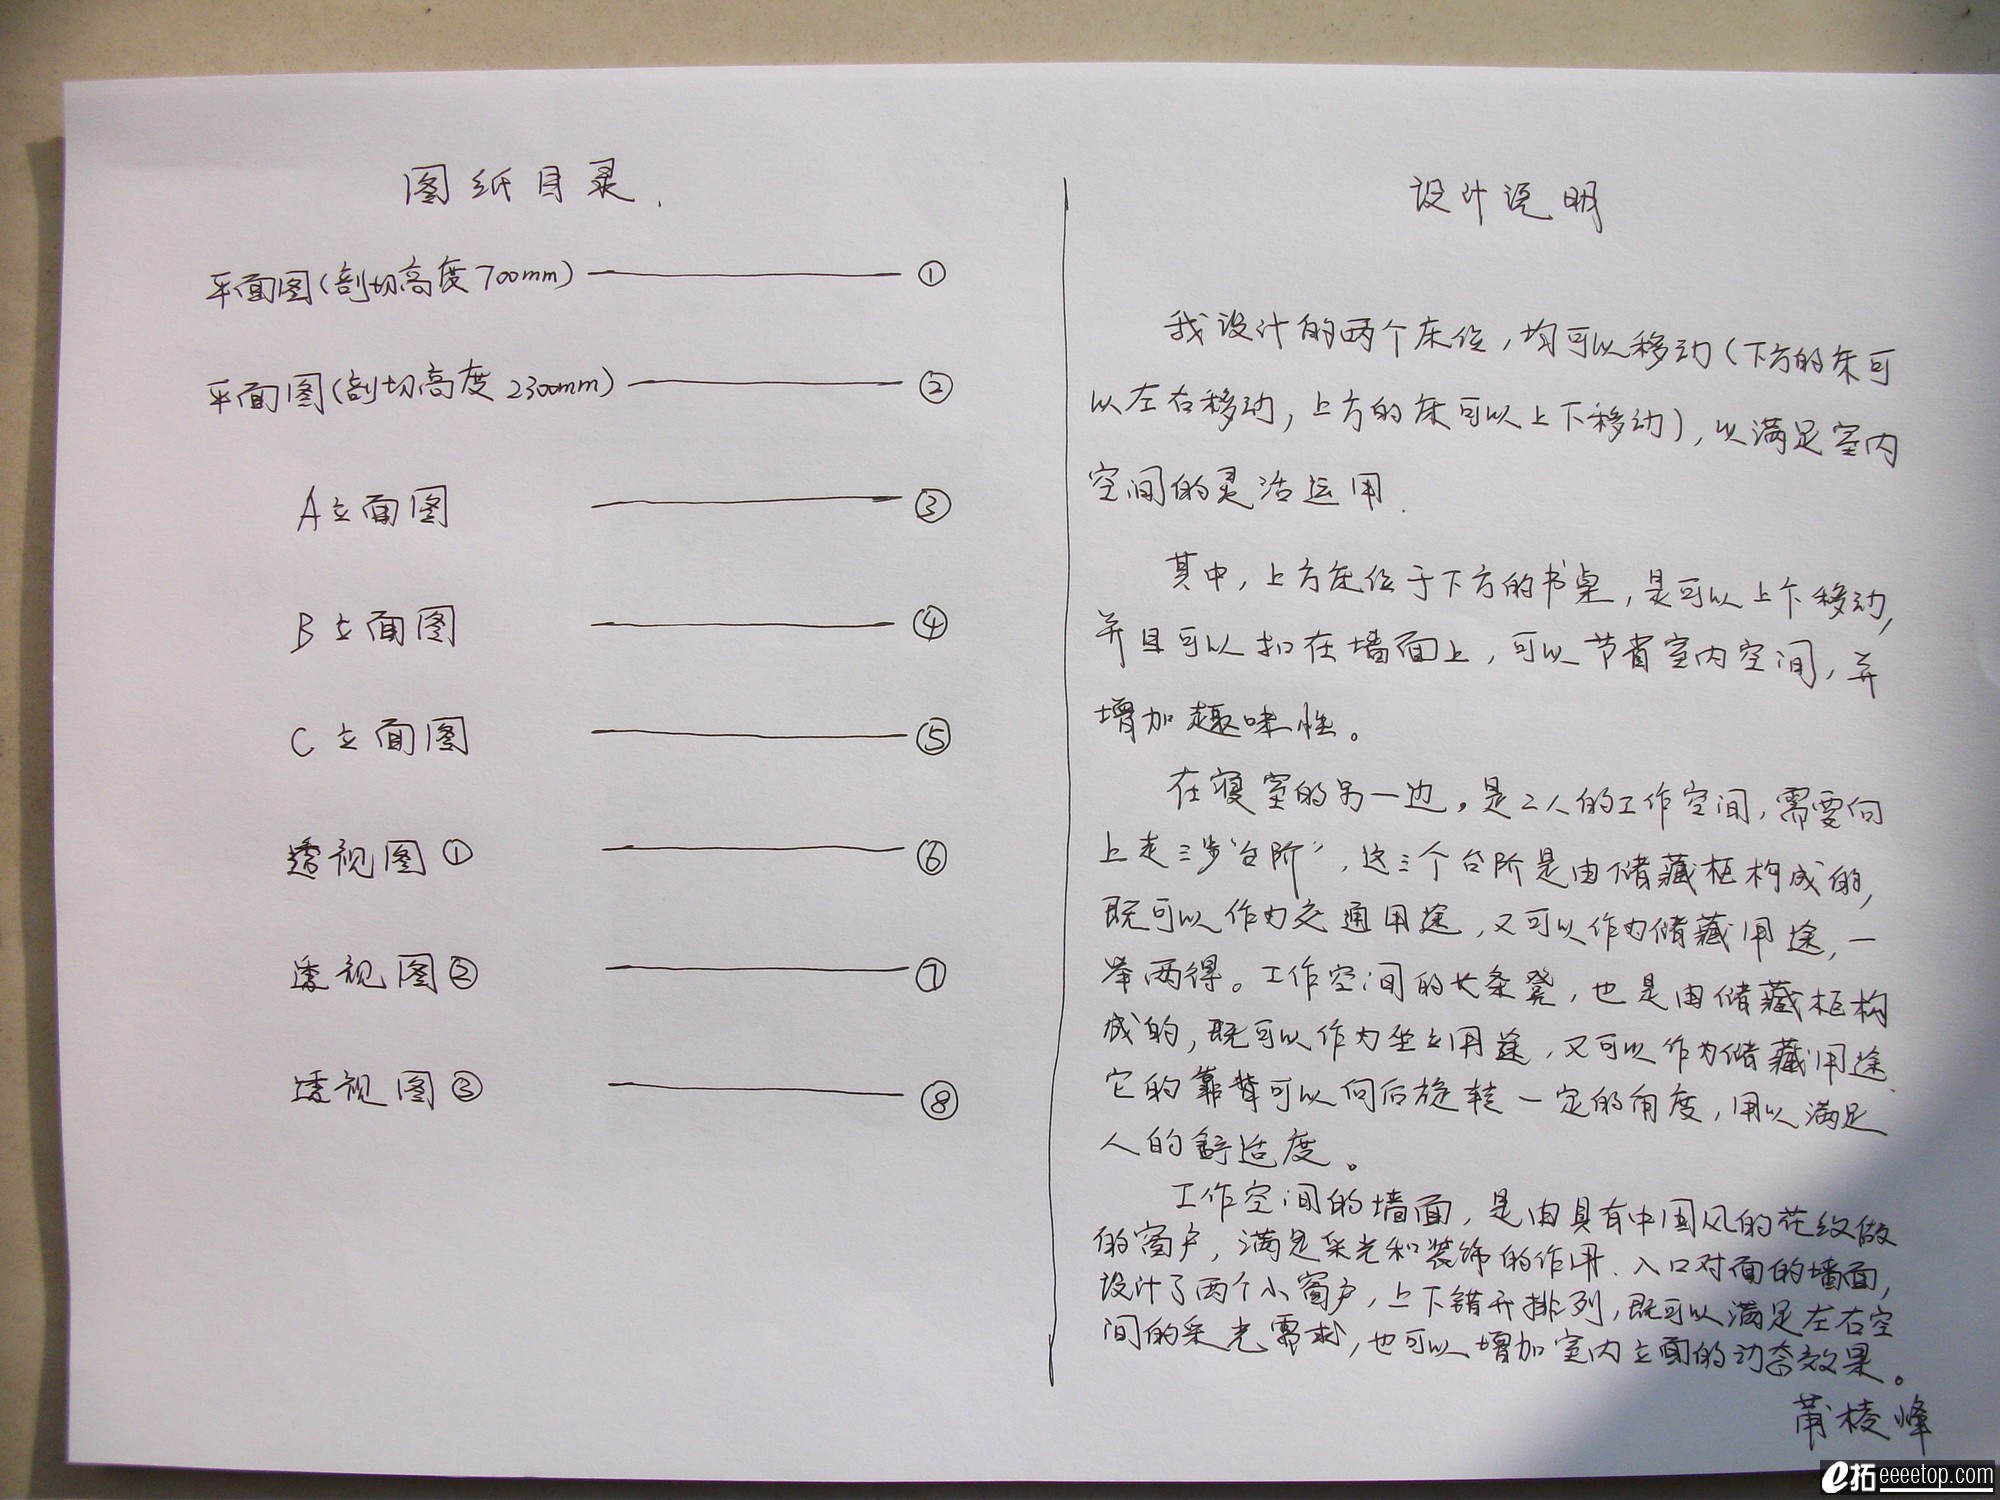 图纸目录.
平面图(剖切高度700mm) ①
平面图(剖切高度2300mm) ②
A立面图 ③
B立面图 ④
C立面图 ⑤
透视图① ⑥
透视图② ⑦
透视图③ ⑧
设计说明
我设计的两个床位,均可以移动(下方的床可
以左右移动,上方的床可以上下移动),以满足室内
空间的灵活运用.
其中,上方床位于下方的书桌,是可以上下移动,
并且可以扣在墙面上,可以节省室内空间,并
增加趣味性。
在寝室的另一边。是二人的工作空间,需要向
上走三步“台阶”,这三个台阶是由储藏柜构成的,
既可以作为交通用途,又可以作为储藏用途,一
举两得。工作空间的长条凳,也是由储藏柜构
成的,既可以作为坐立用途,又可以作为储藏用途.
它的靠背可以向后旋转一定的角度,用以满足
人的舒适度。
工作空间的墙面,是由具有中国风的花纹做
的窗户,满足采光和装饰的作用.入口对面的墙面,
设计了两个小窗户,上下错开排列,既可以满足左右空
间的采光需求,也可以增加室内立面的动态效果。
莆棱峰
e拓 eeeetop.com